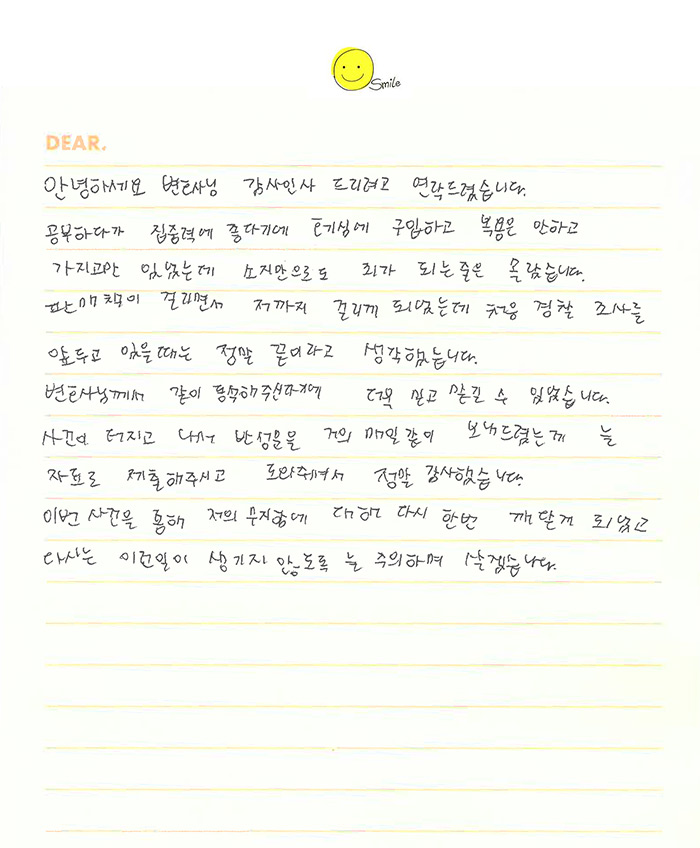 Smile
DEAR.
안녕하세요 변호사님 감사인사 드리려고 연락드렸습니다.
공부하다가 집중력에 좋다기에 호기심에 구입하고 복용은 안하고
가지고만 있었는데 소지만으로도 죄가 되는줄은 몰랐습니다.
판매책이 걸리면서 저까지 걸리게 되었는데 처음 경찰 조사를
앞두고 있을때는 정말 끝이라고 생각했습니다.
변호사님께서 같이 동석해주신다기에 더욱 믿고 맡길 수 있었습니다.
사건이 터지고 나서 반성문을 거의 매일같이 보내드렸는데 늘
자료로 제출해주시고 도와주셔서 정말 감사했습니다.
이번 사건을 통해 저의 무지함에 대해 다시 한번 깨닫게 되었고
다시는 이런일이 생기지 않도록 늘 주의하며 살겠습니다.